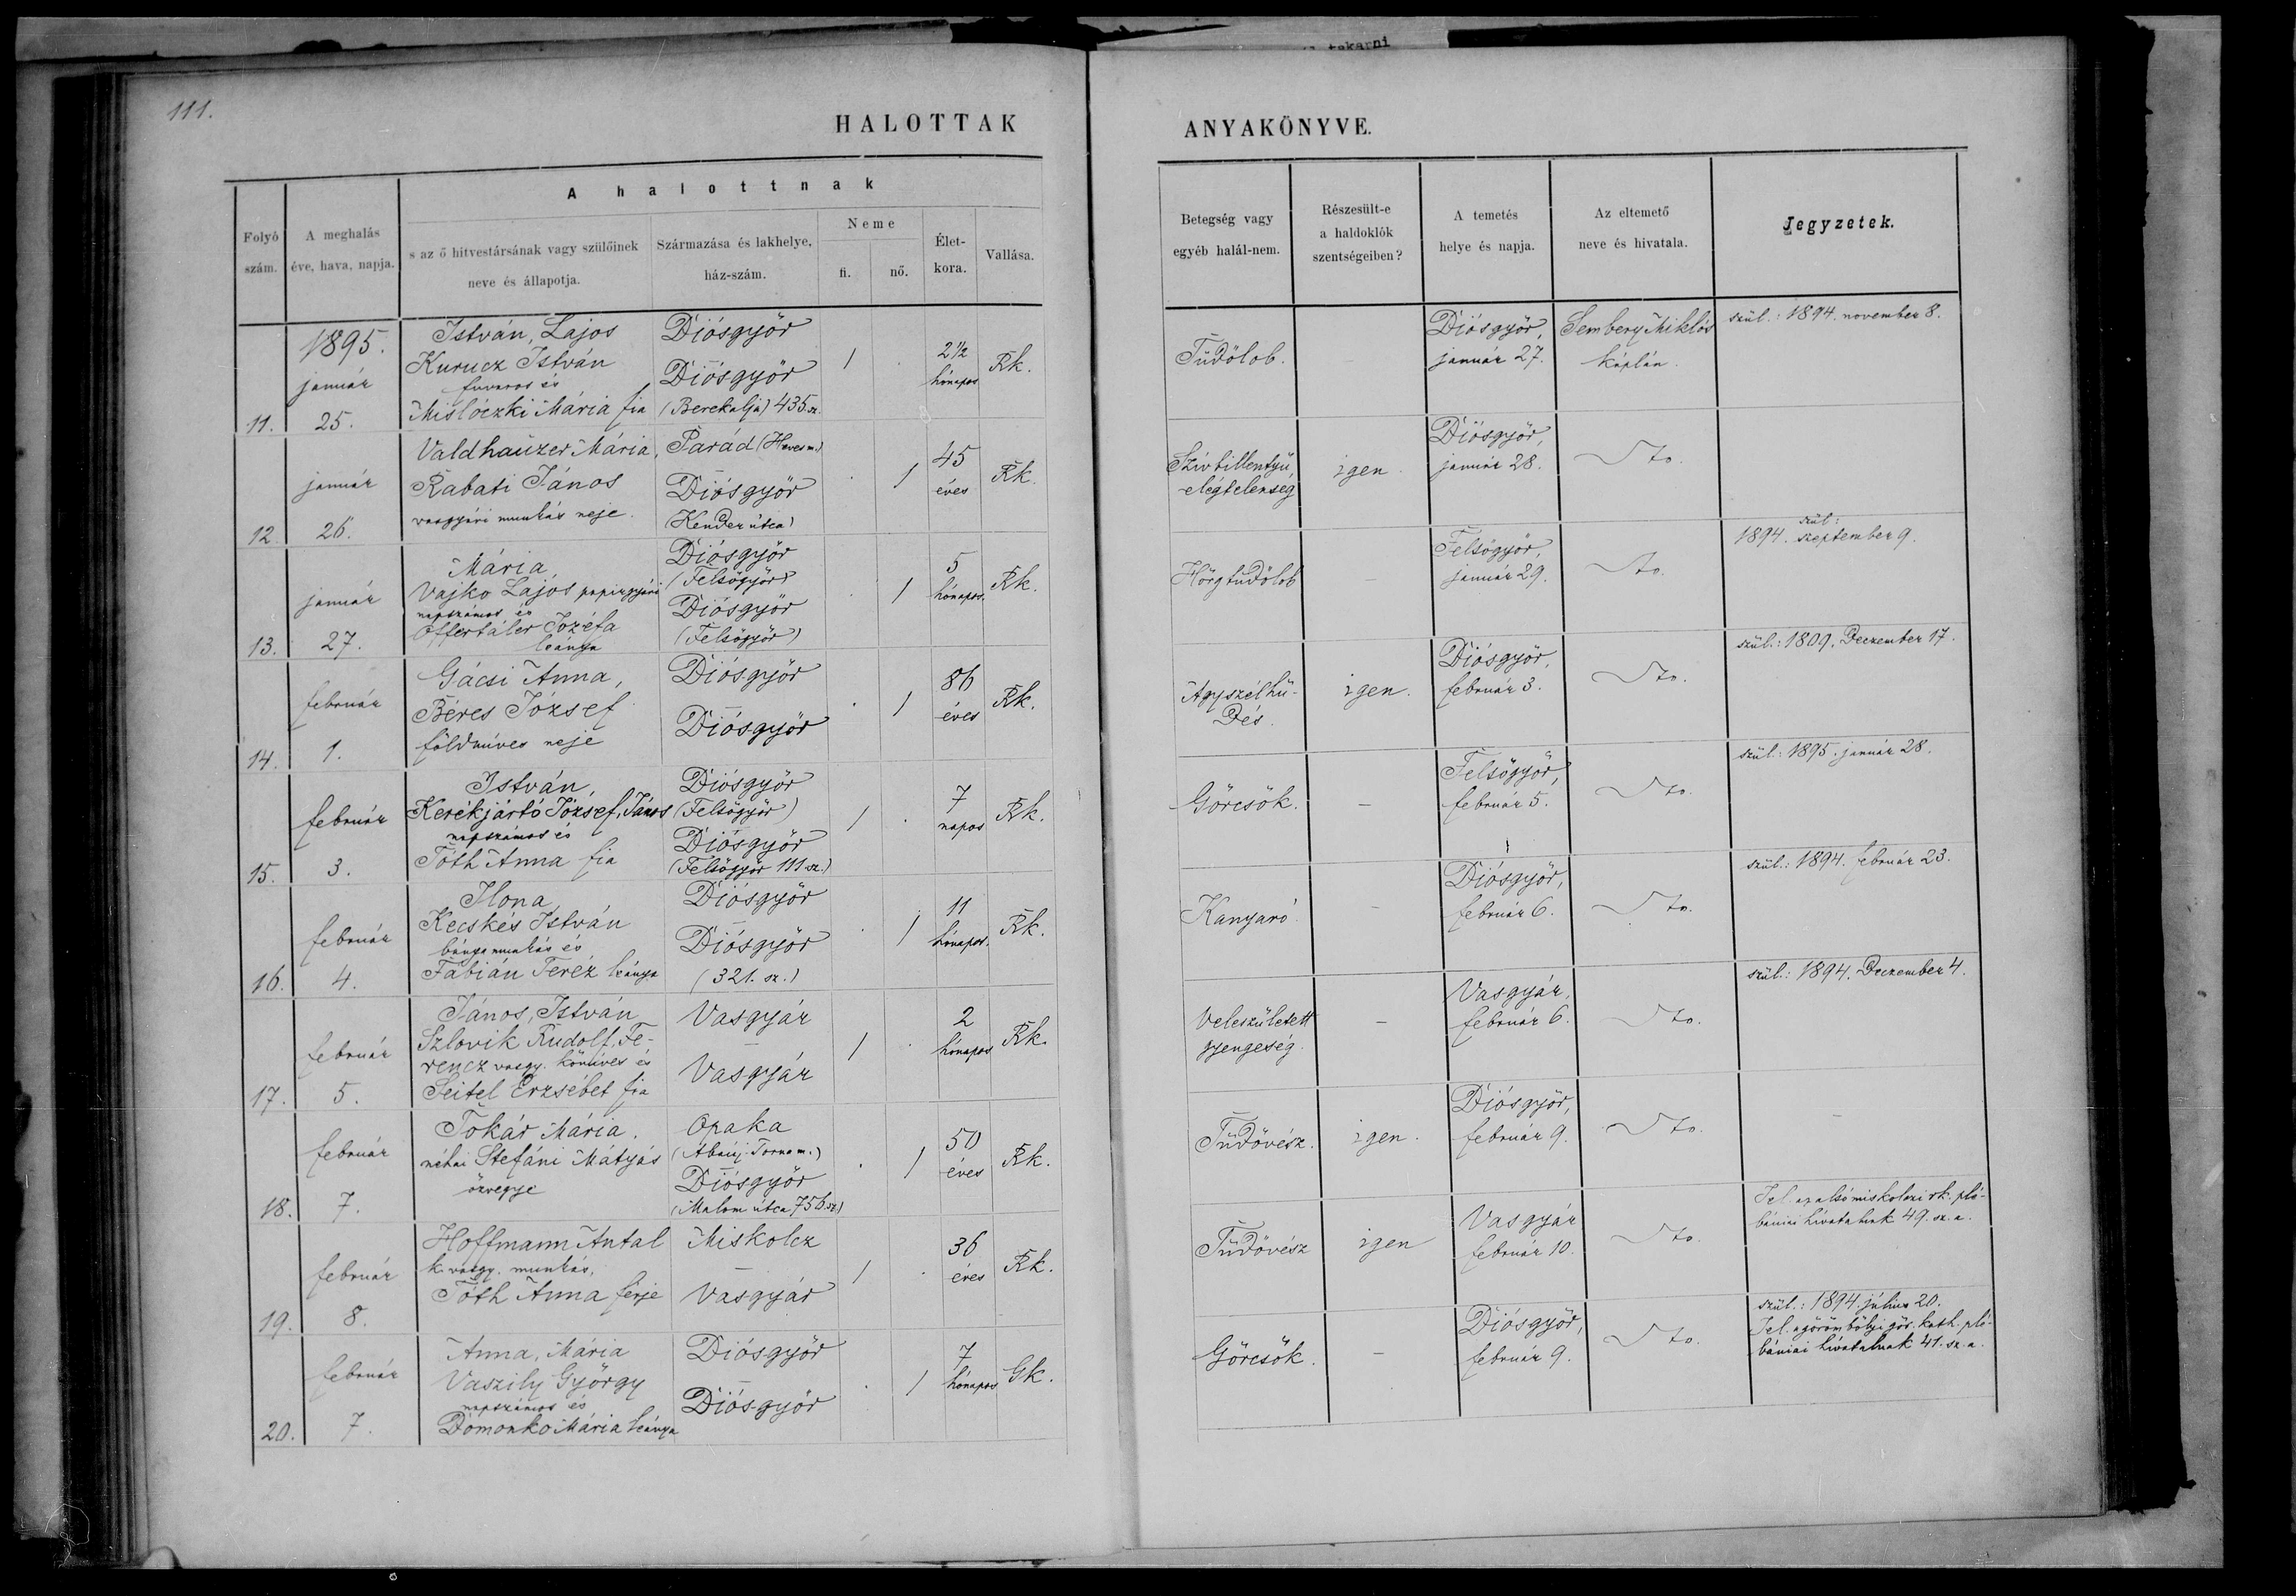 takarni
111.
HALOTTAK
ANYAKÖNYVE.
Folyó szám.
A meghalás éve, hava, napja.
A halottnak
s az ő hitvestársának vagy szülőinek neve és állapotja.
Származása és lakhelye, ház-szám.
Neme
fi.
nő.
Élet-kora.
Vallása.
Betegség vagy egyéb halál-nem.
Részesült-e a haldoklók szentségeiben?
A temetés helye és napja.
Az eltemető neve és hivatala.
Jegyzetek.
11.
1895. január 25.
István, Lajos
Kurucz István
fuvaros és
Mislóczki Mária fia
Diósgyőr
–
Diósgyőr
(Berekalja) 435 sz.
1
.
2 1/2 hónapos
Rk.
Tüdőlob.
–
Diósgyőr, január 27.
Sembery Miklós káplán.
szül.: 1894. november 8.
12
január 26.
Valdhauzer Mária,
Rabati János
vasgyári munkás neje.
Parád (Heves m.)
–
Diósgyőr
(Kender útca)
.
1
45 éves
Rk.
Szívbillentyű elégtelenség
igen.
Diósgyőr, január 28.
Dto.
13.
január 27.
Mária
Vajko Lajos papirgyári
napszámos és
Offertáler Józéfa
leánya
Diósgyőr
(Felsőgyőr)
Diósgyőr
(Felsőgyőr)
.
1
5 hónapos.
Rk.
Hörgtüdőlob
–
Felsőgyőr, január 29.
Dto.
szül:
1894. szeptember 9.
14.
február 1.
Gácsi Anna,
Béres József
földmíves neje
Diósgyőr
–
Diósgyőr
.
1
86 éves
Rk.
Agyszélhű-
dés.
igen.
Diósgyőr, február 3.
Dto.
szül.: 1809. Deczember 17.
15.
február 3.
István,
Kerékjártó József, János
napszámos és
Tóth Anna fia
Diósgyőr
(Felsőgyőr)
Diósgyőr
(Felsőgyőr 111 sz.)
1
.
7 napos
Rk.
Görcsök.
–
Felsőgyőr, február 5.
Dto.
szül.: 1895. január 28.
16.
február 4.
Ilona
Kecskés István
bánya munkás és
Fábián Teréz leánya
Diósgyőr
–
Diósgyőr
(321. sz.)
.
1
11 hónapos.
Rk.
Kanyaró
–
Diósgyőr, február 6.
Dto.
szül.: 1894. február 23.
17.
február 5.
János, István
Szlovik Rudolf, Fe-
rencz vasgy. kőmíves és
Seitel Erzsébet fia
Vasgyár
–
Vasgyár
1
.
2 hónapos
Rk.
Veleszületett gyengeség.
–
Vasgyár, február 6.
Dto.
szül.: 1894. Deczember 4.
18.
február 7.
Tokár Mária.
néhai Stefáni Mátyás
özvegye
Opaka
(Abauj-Torna m.)
Diósgyőr
(Malom útca 756. sz.)
.
1
50 éves
Rk.
Tüdővész.
igen.
Diósgyőr, február 9.
Dto.
–
19.
február 8.
Hoffmann Antal
k. vasgy. munkás,
Tóth Anna férje
Miskolcz
–
Vasgyár
1
.
36 éves
Rk.
Tüdővész
igen
Vasgyár február 10.
Dto.
Jel. az alsómiskolczi rk. plé-
bániai hivatalnak 49. sz. a.
20.
február 7.
Anna, Mária
Vaszily György
napszámos és
Domonko Mária leánya
Diósgyőr
–
Diósgyőr
.
1
7 hónapos
Gk.
Görcsök.
–
Diósgyőr, február 9.
Dto.
szül.: 1894. július 20.
Jel. a görömbölyi gör. kath. plé-
bániai hivatalnak 41. sz. a.